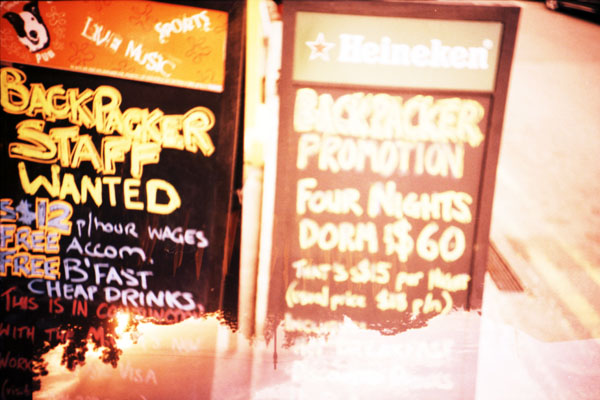 SPORTS
LIVE MUSIC
BACKPACKER
STAFF
WANTED
$12 p/HOUR WAGES
FREE ACCOM.
FREE B'FAST
CHEAP DRINKS
THIS IS IN
WITH THE
VISA
Heineken
BACKPACKER
PROMOTION
FOUR NIGHTS
DORM $60
THAT'S $15 per NIGHT
(usual price $18 p/n)